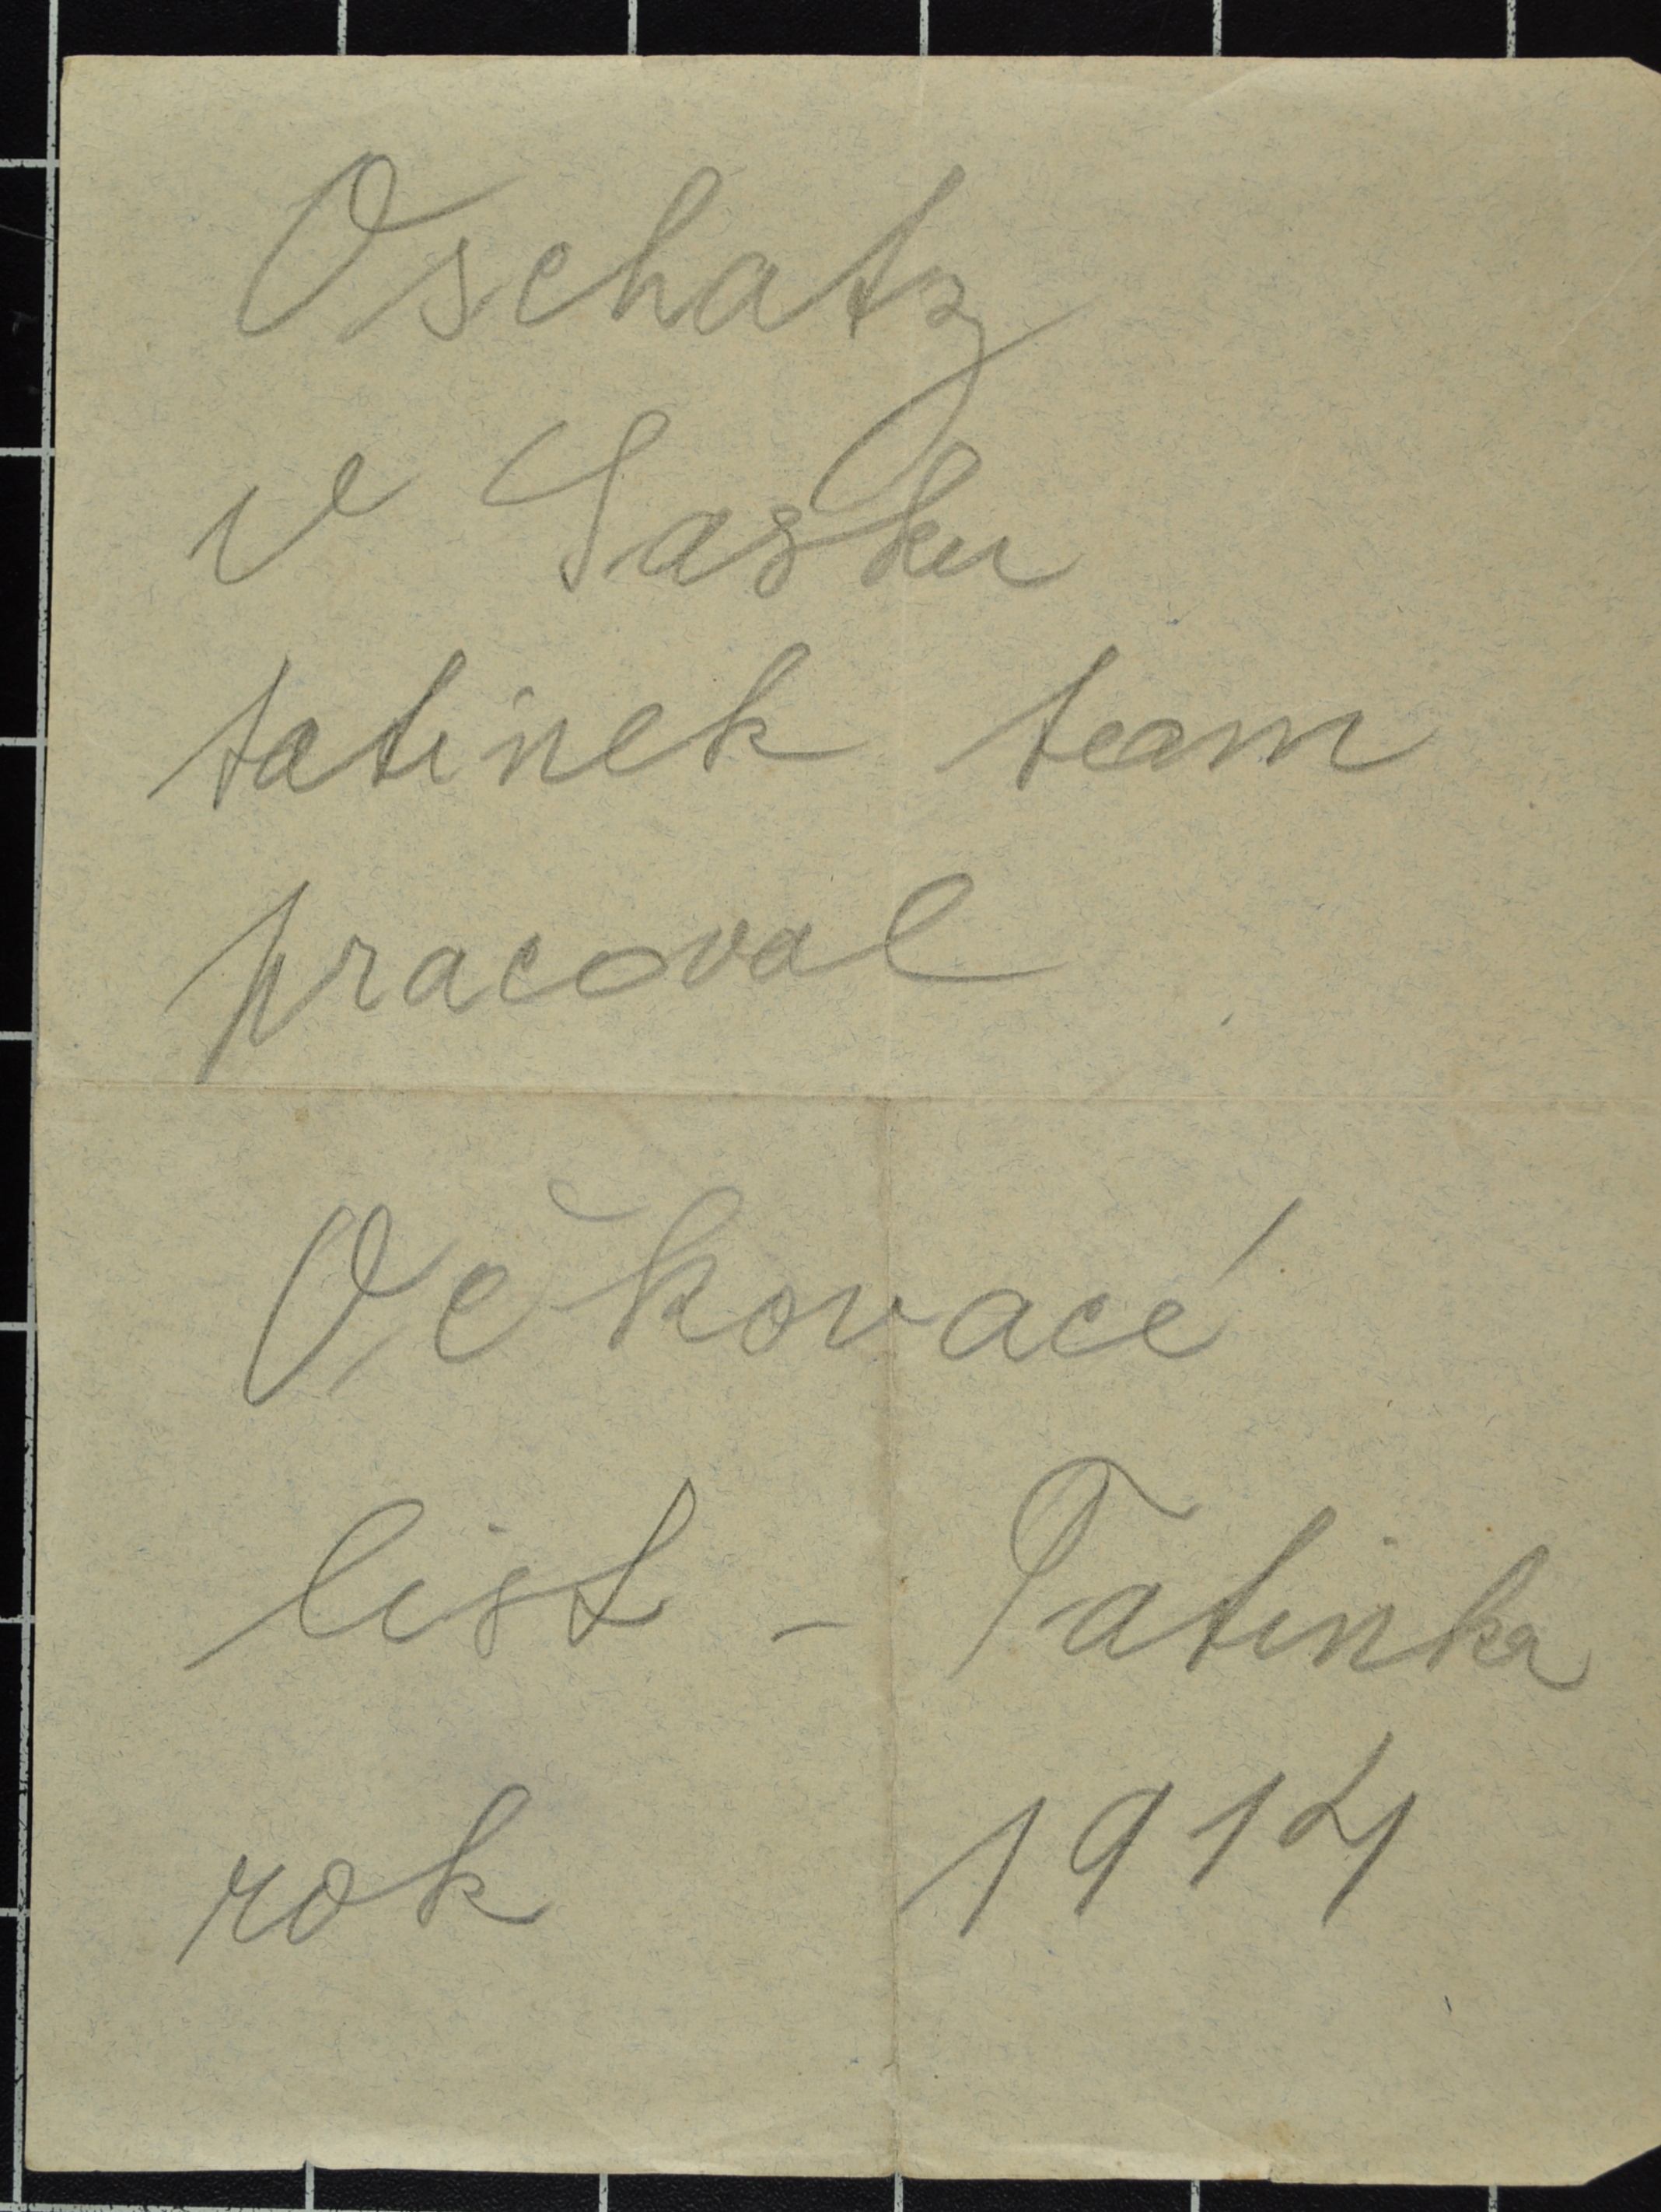 Oschatz
v Sasku
tatinek tam
pracoval
Očkovacé
list - Tatinka
rok 1914